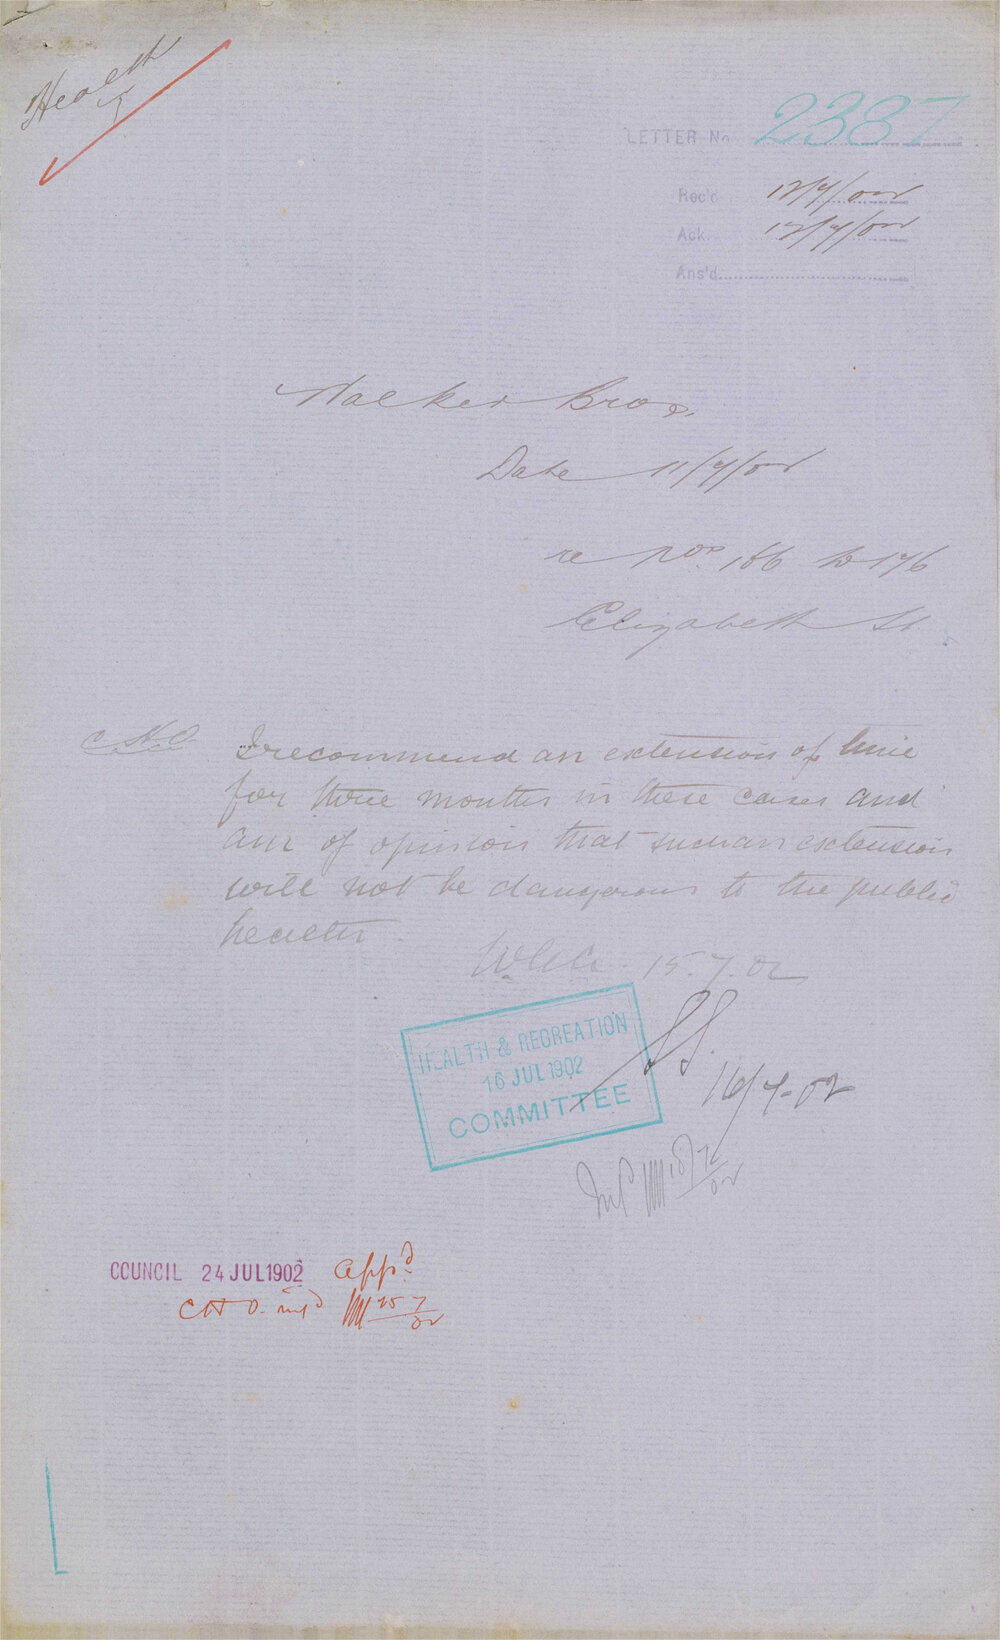 Health
LETTER No 2387
Rec'd 12/7/02
Ack. 12/7/02
Ans'd
Walker Bros.
Date 11/7/02
re Nos. 166 to 176
Elizabeth St.
C.H.O. I recommend an extension of time
for three months in these cases and
am of opinion that such an extension
will not be dangerous to the public
health.
15.7.02
HEALTH & RECREATION
16 JUL 1902
COMMITTEE
16/7-02
COUNCIL 24 JUL 1902 appd
CHO. infd 25/7/02